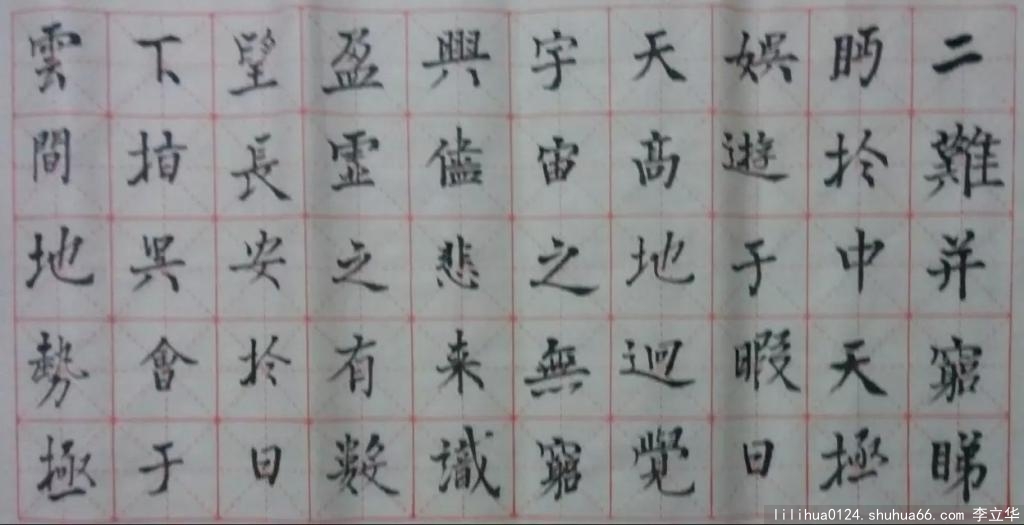 二難并窮睇
眄於中天極
娛遊于暇日
天高地迥覺
宇宙之無窮
興儘悲来識
盈虛之有數
望長安於日
下指吳會于
雲間地勢極
lilihua0124.shuhua66.com 李立华